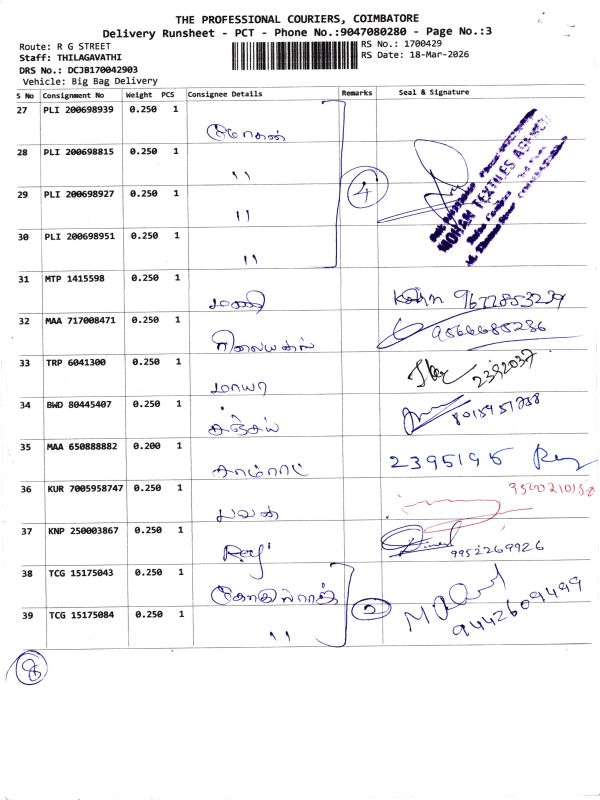 THE PROFESSIONAL COURIERS, COIMBATORE
Delivery Runsheet - PCT - Phone No.:9047080280 - Page No.:3
Route: R G STREET
RS No.: 1700429
Staff: THILAGAVATHI
RS Date: 18-Mar-2026
DRS No.: DCJB170042903
Vehicle: Big Bag Delivery
S No Consignment No Weight PCS Consignee Details Remarks Seal & Signature
27 PLI 200698939 0.250 1 மோகன்
28 PLI 200698815 0.250 1 "
4
MOHAN TEXTILES AGENCY
29 PLI 200698927 0.250 1 "
30 PLI 200698951 0.250 1 "
31 MTP 1415598 0.250 1 மணி 9677853239
32 MAA 717008471 0.250 1 9566685286
33 TRP 6041300 0.250 1 மாயா 2392037
34 BWD 80445407 0.250 1 சஞ்சய்
35 MAA 650888882 0.200 1 சாம்ராட் 2395195
36 KUR 7005958747 0.250 1 பவன்
37 KNP 250003867 0.250 1 Raj 9952269926
38 TCG 15175043 0.250 1
2
39 TCG 15175084 0.250 1 " 9442609499
8